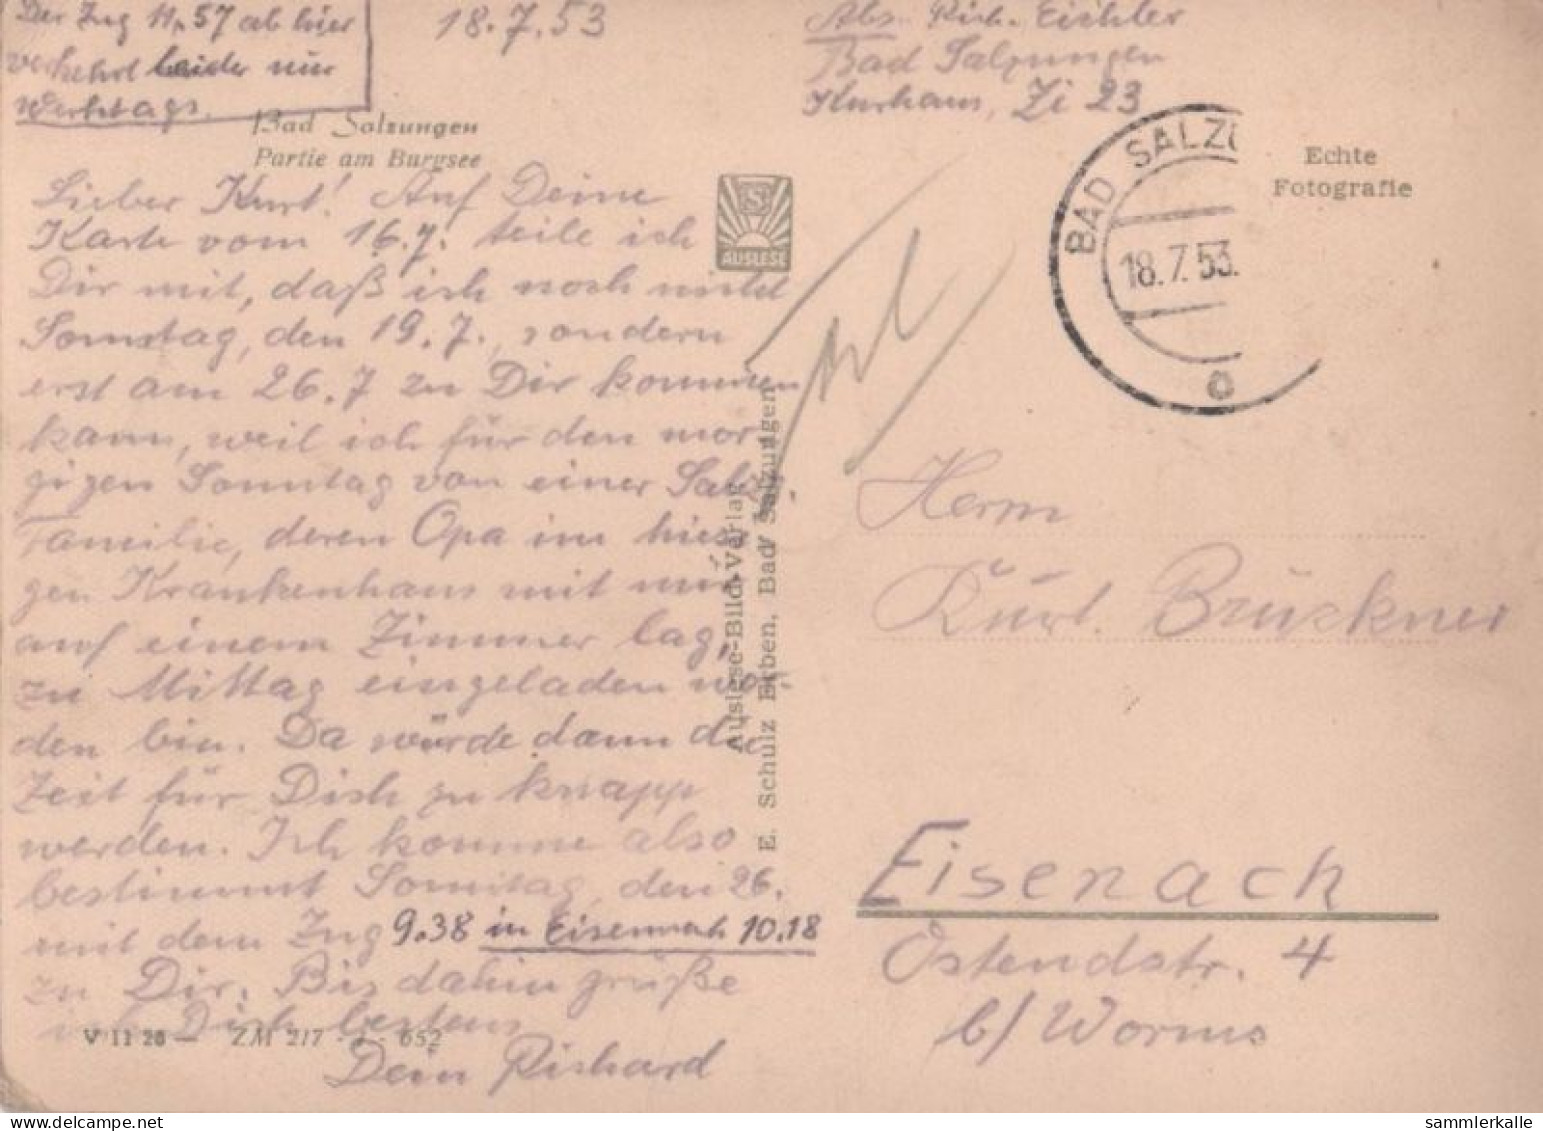 Der Zug 11.57 ab hier
verkehrt leider nur
Werktags.
18.7.53
Abs. Rich. Eichler
Bad Salzungen
Kurhaus, Zi 23
Bad Salzungen
Partie am Burgsee
Lieber Kurt! Auf Deine
Karte vom 16.7. teile ich
Dir mit, daß ich noch nicht
Sonntag, den 19.7., sondern
erst am 26.7 zu Dir kommen
kann, weil ich für den mor-
gigen Sonntag von einer Salz.
Familie, deren Opa im hiesi
gen Krankenhaus mit mir
auf einem Zimmer lag,
zu Mittag eingeladen wor-
den bin. Da würde dann die
Zeit für Dich zu knapp
werden. Ich komme also
bestimmt Sonntag, den 26.
mit dem Zug 9.38 in Eisenach 10.18
zu Dir. Bis dahin grüße
ich Dich bestens
Dein Richard
V 11 28 — ZM 217 - J - 652
S
AUSLESE
Auslese-Bild-Verlag
E. Schulz Erben, Bad Salzungen
BAD SALZU
18.7.53.
o
Echte
Fotografie
Herrn
Kurt. Brückner
Eisenach
Ostendstr. 4
b/ Worms
sammlerkalle
delcampe.net